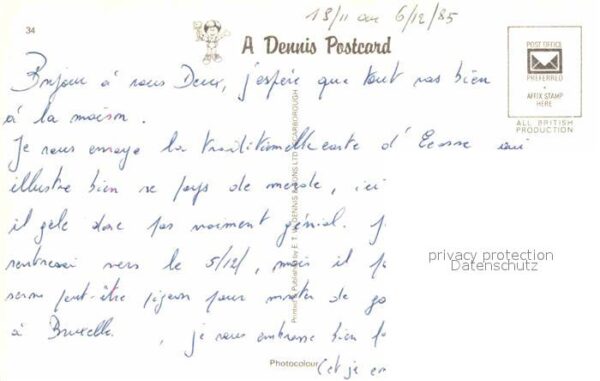 34
13/11 au 6/12/85
A Dennis Postcard
POST OFFICE
PREFERRED
AFFIX STAMP
HERE
ALL BRITISH
PRODUCTION
Bonjour à vous Deux, j'espère que tout vas bien
à la maison.
Je vous envoye la traditionnelle carte d'Ecosse qui
illustre bien ce pays de merde, ici
il gèle donc pas vraiment génial. J
rentrerai vers le 5/12/, mais il
serez peut-être pour de
à Bruxelle. , je vous embrasse bien
(et je en
Printed & Published by E. T. W. DENNIS & SONS LTD., SCARBOROUGH
Photocolour
privacy protection
Datenschutz